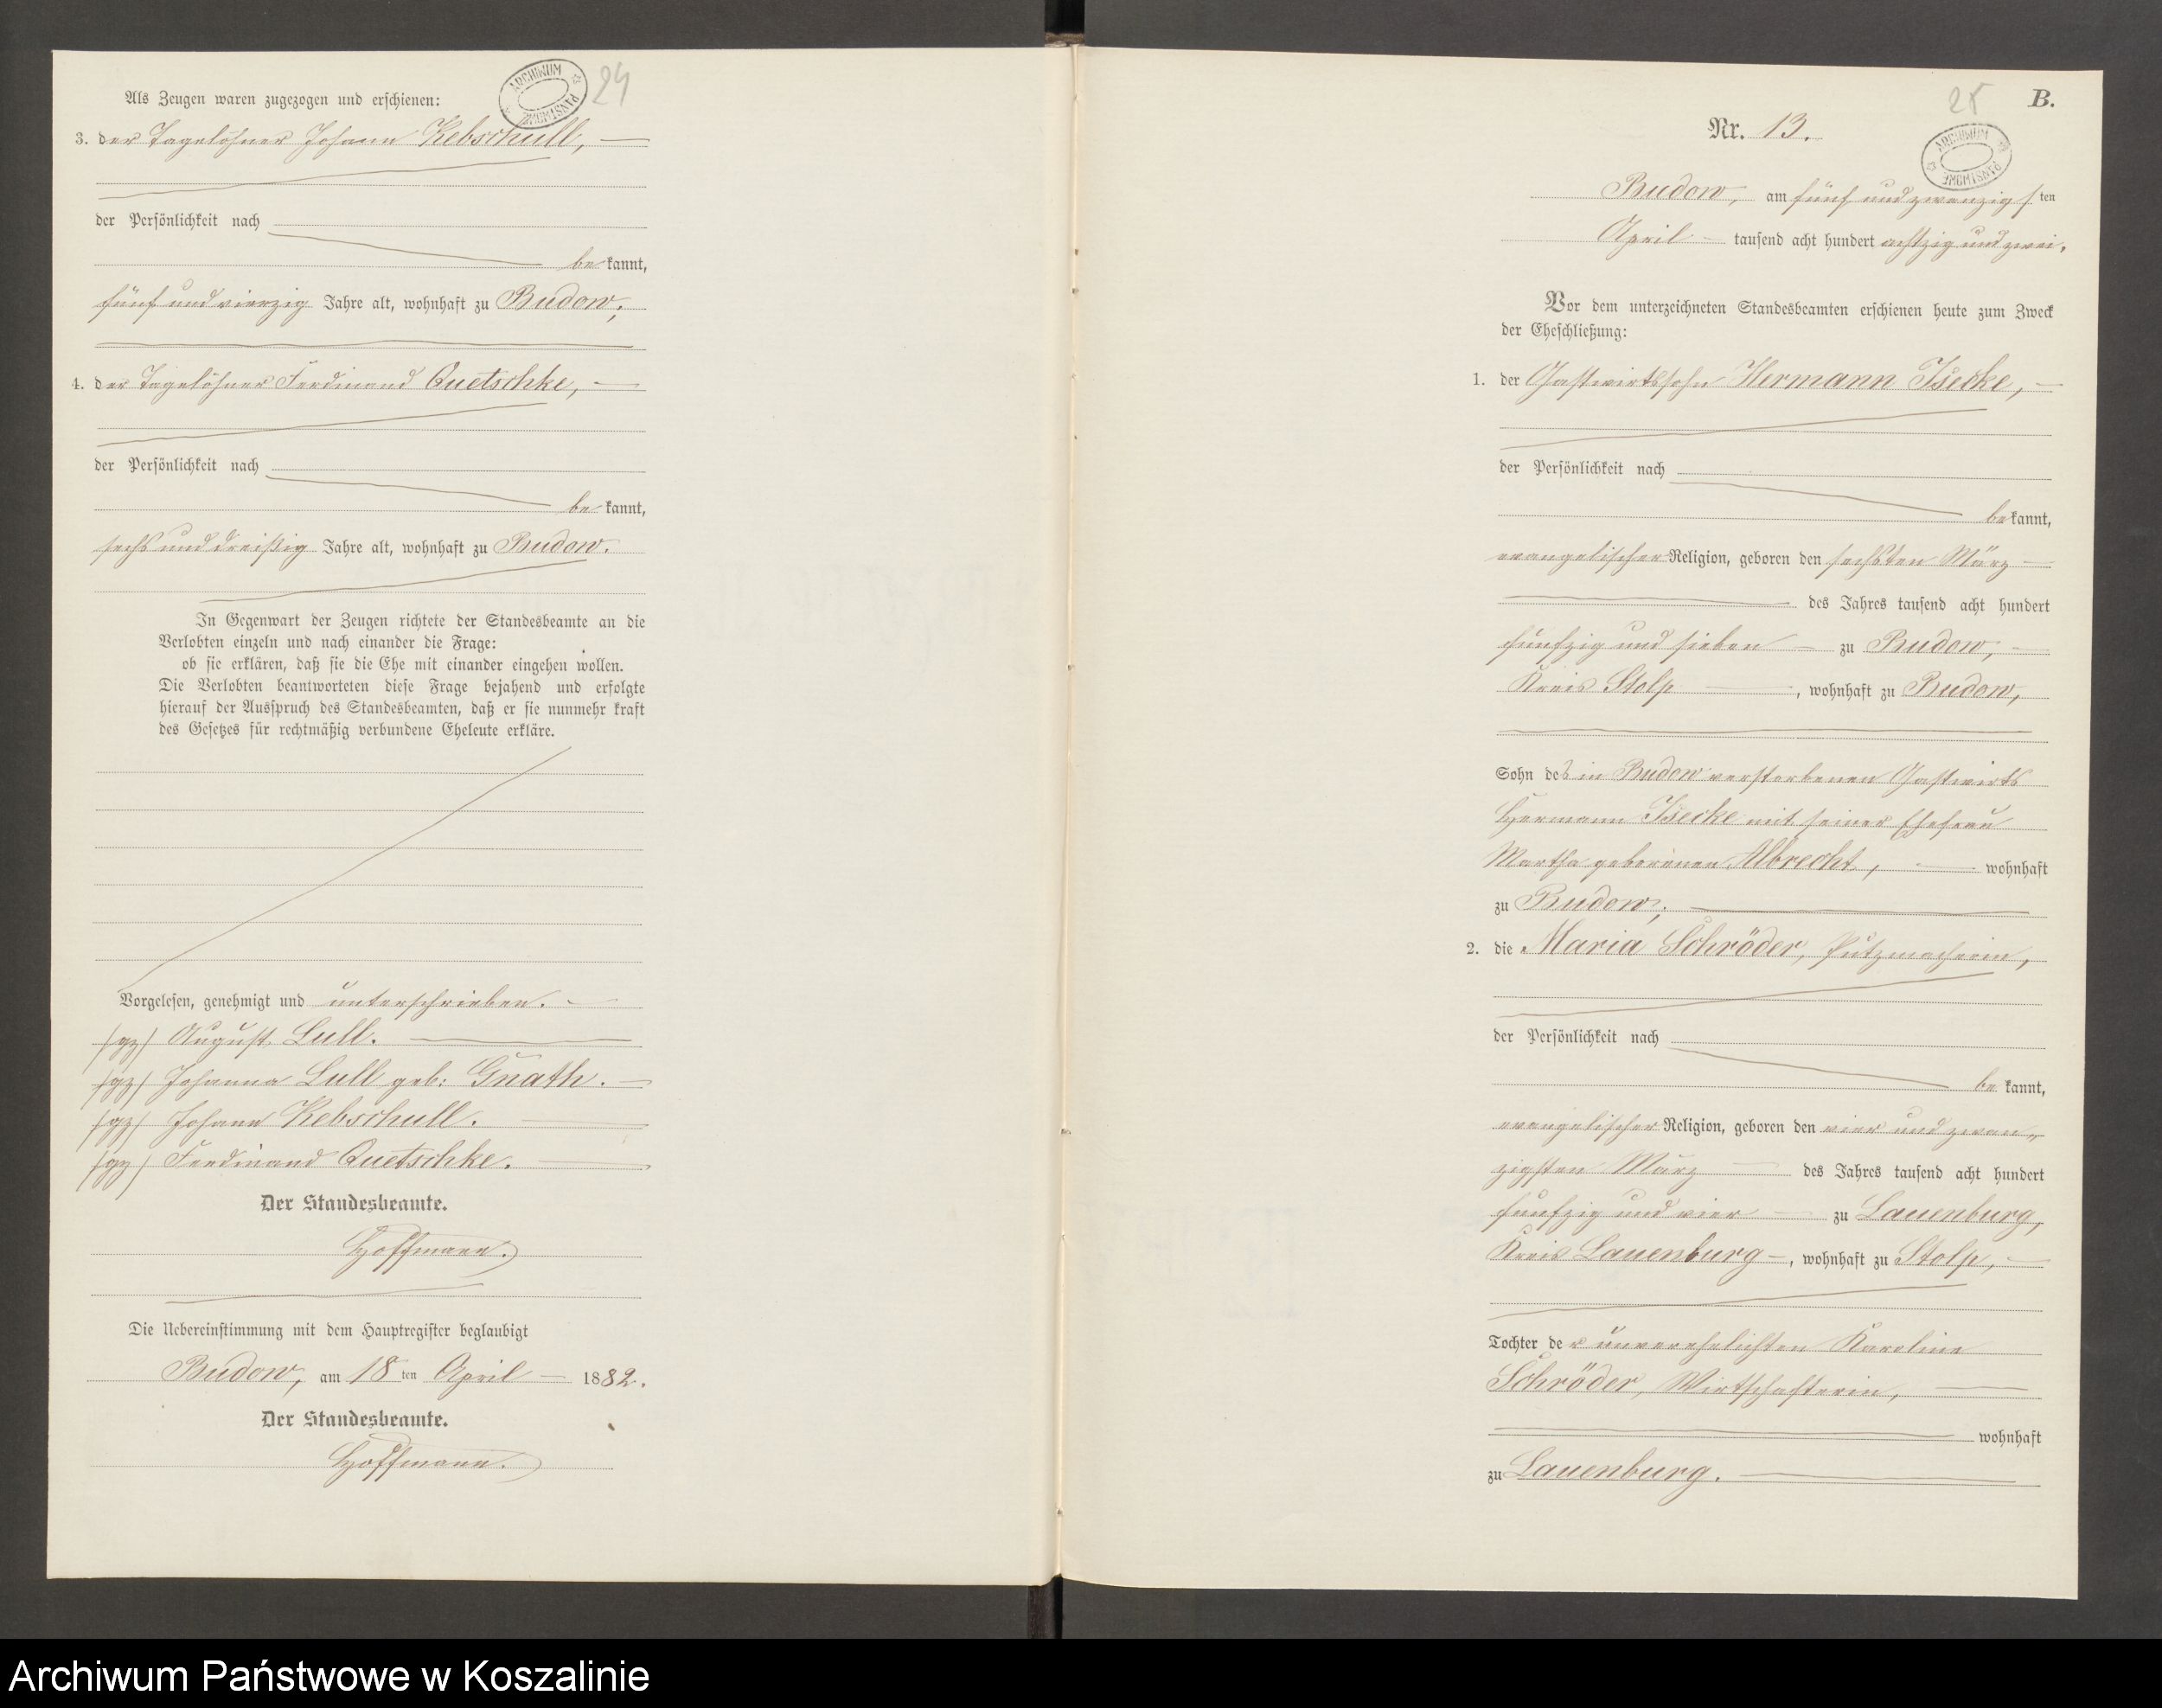 24
ARCHIWUM PAŃSTWOWE
Als Zeugen waren zugezogen und erschienen:
3. der Tagelöhner Johann Kebschull,
der Persönlichkeit nach
bekannt,
fünf und vierzig Jahre alt, wohnhaft zu Budow;
4. der Tagelöhner Ferdinand Quetschke,
der Persönlichkeit nach
bekannt,
sechs und dreißig Jahre alt, wohnhaft zu Budow.
In Gegenwart der Zeugen richtete der Standesbeamte an die
Verlobten einzeln und nach einander die Frage:
ob sie erklären, daß sie die Ehe mit einander eingehen wollen.
Die Verlobten beantworteten diese Frage bejahend und erfolgte
hierauf der Ausspruch des Standesbeamten, daß er sie nunmehr kraft
des Gesetzes für rechtmäßig verbundene Eheleute erkläre.
Vorgelesen, genehmigt und unterschrieben.
(gz) August Lull.
(gz) Johanna Lull geb: Gnath.
(gz) Johann Kebschull.
(gz) Ferdinand Quetschke.
Der Standesbeamte.
Hoffmann.
Die Uebereinstimmung mit dem Hauptregister beglaubigt
Budow, am 18ten April 1882.
Der Standesbeamte.
Hoffmann.
25
B.
Nr. 13.
ARCHIWUM PAŃSTWOWE
Budow, am fünf und zwanzigsten
April tausend acht hundert achtzig und zwei.
Vor dem unterzeichneten Standesbeamten erschienen heute zum Zweck
der Eheschließung:
1. der Gastwirtssohn Hermann Isecke,
der Persönlichkeit nach
bekannt,
evangelischer Religion, geboren den sechsten März
des Jahres tausend acht hundert
fünfzig und sieben zu Budow,
Kreis Stolp, wohnhaft zu Budow,
Sohn des in Budow verstorbenen Gastwirts
Hermann Isecke mit seiner Ehefrau
Martha geborenen Albrecht, wohnhaft
zu Budow;
2. die Maria Schröder, Putzmacherin,
der Persönlichkeit nach
bekannt,
evangelischer Religion, geboren den vier und zwan-
zigsten März des Jahres tausend acht hundert
fünfzig und vier zu Lauenburg,
Kreis Lauenburg, wohnhaft zu Stolp,
Tochter der unverehelichten Karoline
Schröder, Wirtschafterin,
wohnhaft
zu Lauenburg.
Archiwum Państwowe w Koszalinie